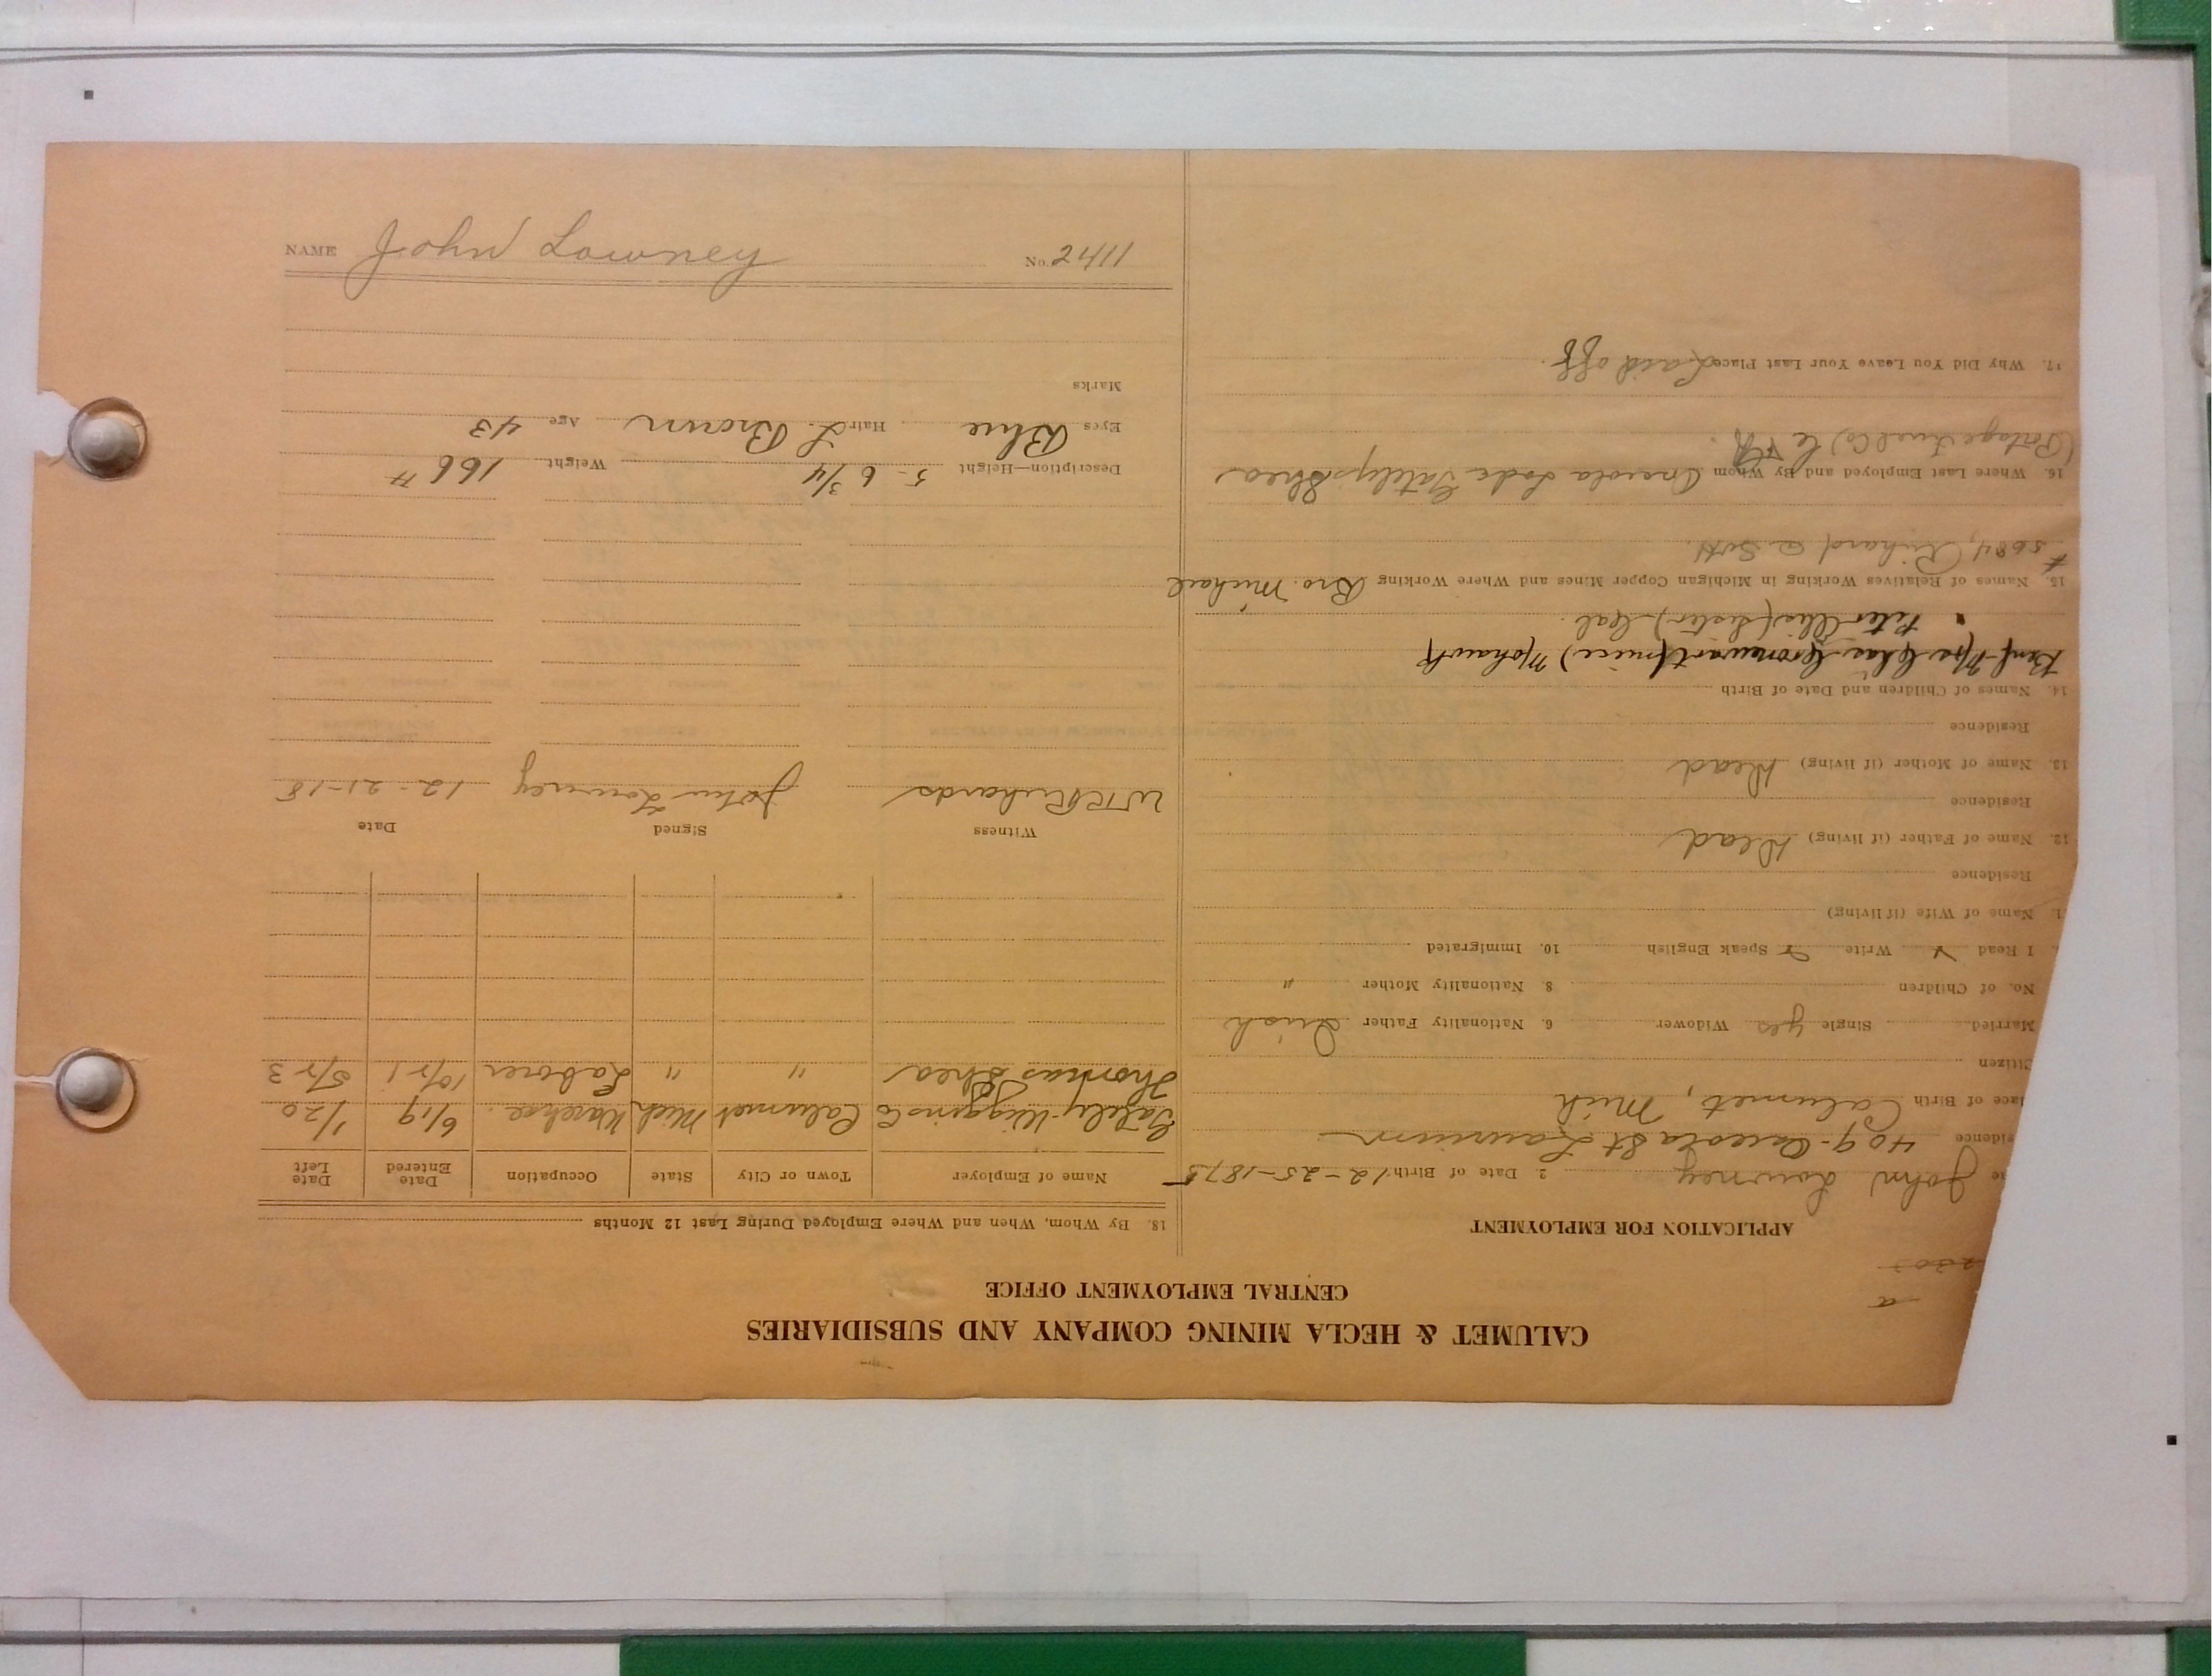 NAME John Lowney No. 2411
CALUMET & HECLA MINING COMPANY AND SUBSIDIARIES
CENTRAL EMPLOYMENT OFFICE
2303
APPLICATION FOR EMPLOYMENT
me John Lowney 2. Date of Birth 12-25-1875
sidence 409-Osceola St Laurium
lace of Birth Calumet, Mich
Citizen
Married Single yes Widower 6. Nationality Father Irish
No. of Children 8. Nationality Mother "
I Read Write Speak English 10. Immigrated
1. Name of Wife (if living)
Residence
12. Name of Father (if living) Dead
Residence
13. Name of Mother (if living) Dead
Residence
14. Names of Children and Date of Birth
Benf-Mrs Chas (niece) Mohawk
" Peter (sister) Cal.
15. Names of Relatives Working in Michigan Copper Mines and Where Working Bro. Michael
#5684, Richard
16. Where Last Employed and By Whom Osceola Lode Gately Shea
(Portage Fuel Co)
17. Why Did You Leave Your Last Place Laid off.
18. By Whom, When and Where Employed During Last 12 Months
Name of Employer Town or City State Occupation Date Entered Date Left
Gately-Wiggins Co Calumet Mich Warehse. 6/19 1/20
Thomas Shea " " Laborer 10/21 5/23
Witness Signed Date
WR Richards John Lowney 12-21-18
Description—Height 5-6 3/4 Weight 166 #
Eyes Blue Hair L. Brown Age 43
Marks